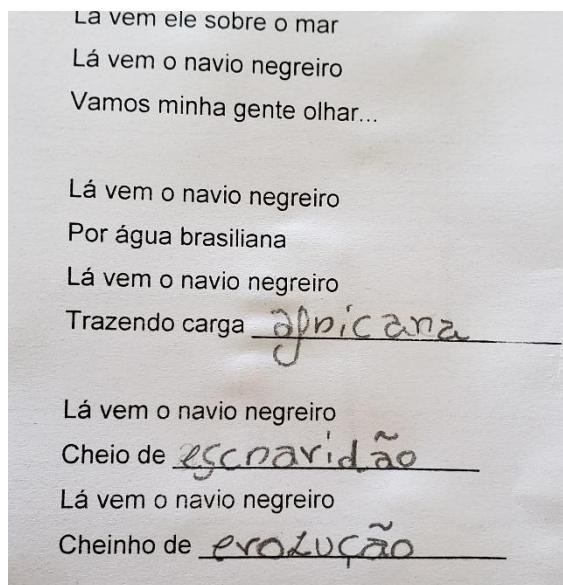 Lá vem ele sobre o mar
Lá vem o navio negreiro
Vamos minha gente olhar...
Lá vem o navio negreiro
Por água brasiliana
Lá vem o navio negreiro
Trazendo carga africana
Lá vem o navio negreiro
Cheio de escravidão
Lá vem o navio negreiro
Cheinho de evolução